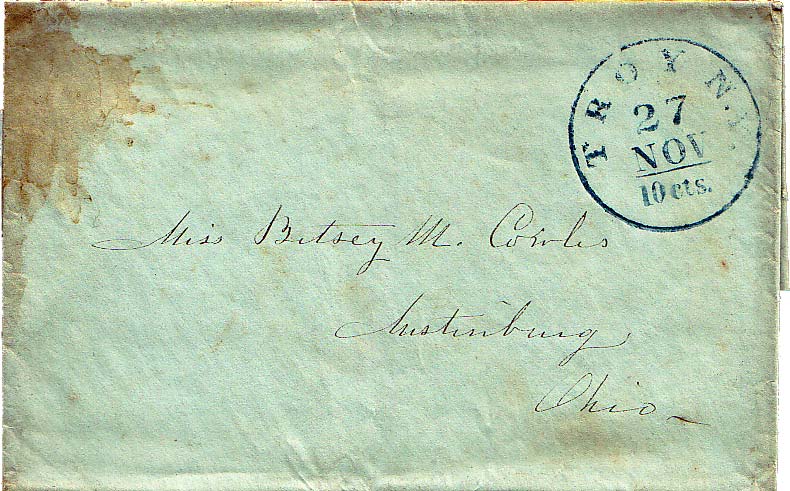 TROY N.Y.
27
NOV
10 cts.
Miss Betsey M. Cowles
Austinburg
Ohio